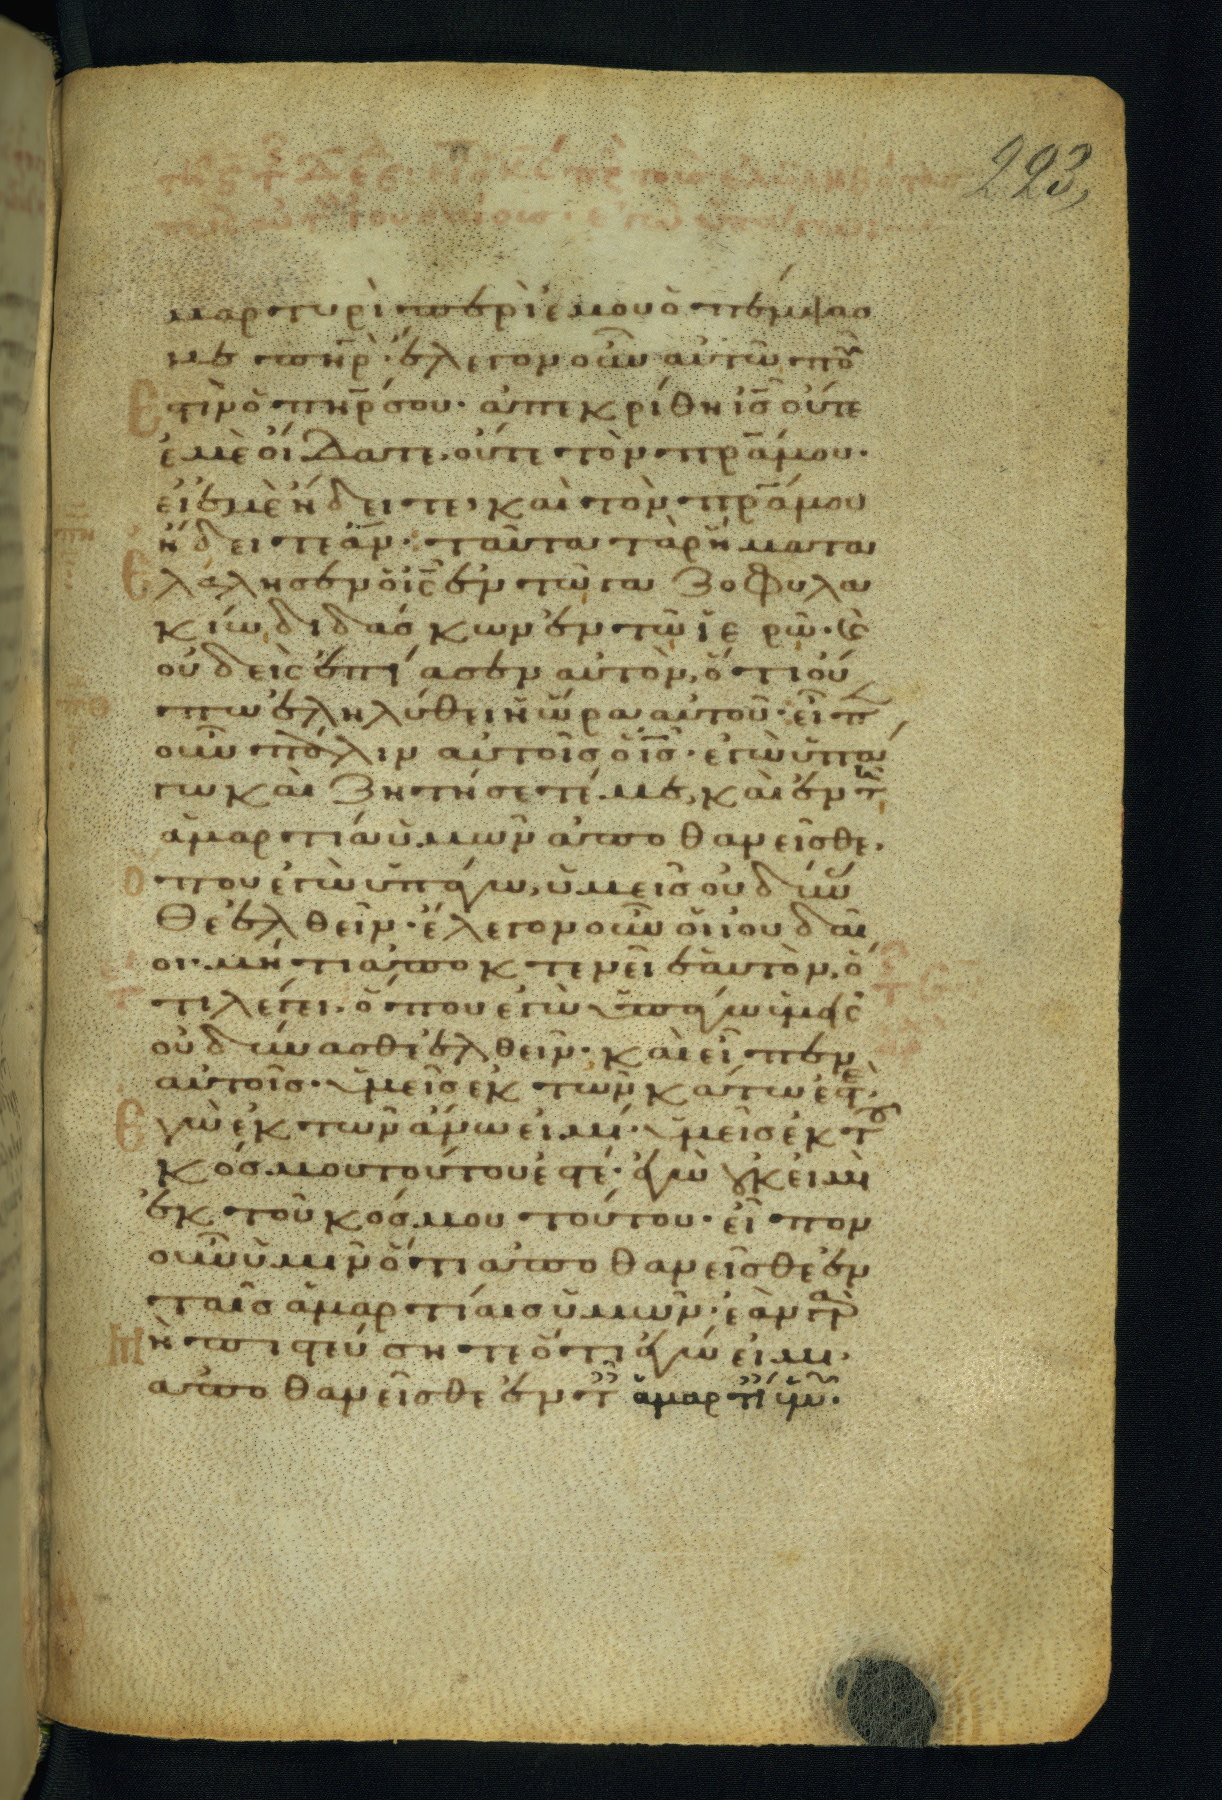 223
μαρτυρὶ περὶ ἐμοῦ ὁ πέμψασ
με πηρ· ἔλεγον οὖν αὐτῶ ποῦ
ἐστὶν ὁ πηρ σου· ἀπεκρίθη ις οὔτε
ἐμὲ οἴδατε, οὔτε τὸν πρα μου·
εἰ ἐμὲ ἤδειτε, καὶ τὸν πρα μου
ἤδειτε ἄν· ταῦτα τὰ ῥήματα
Ἐλάλησεν ὁ ις ἐν τῶ γαζοφυλα
κίω, διδάσκων ἐν τῶ ἱερῶ· καὶ
οὐδεὶς ἐπίασεν αὐτὸν, ὅτι οὔ
πω ἐληλύθει ἡ ὥρα αὐτοῦ· εἶπ
οὖν πάλιν αὐτοῖσ ὁ ις· ἐγὼ ὑπά
γω καὶ ζητήσετέ με, καὶ ἐν τῆ
ἁμαρτία ὑμῶν ἀποθανεῖσθε·
Ὅπου ἐγὼ ὑπάγω, ὑμεῖσ οὐ δύνασ
θε ἐλθεῖν· ἔλεγον οὖν οἱ ἰουδαῖ
οι· μήτι ἀποκτενεῖ ἑαυτὸν, ὅ
τι λέγει· ὅπου ἐγὼ ὑπάγω ὑμεῖς
οὐ δύνασθε ἐλθεῖν· καὶ εἶπεν
αὐτοῖσ· ὑμεῖσ ἐκ τῶν κάτω ἐστέ·
Ἐγὼ ἐκ τῶν ἄνω εἰμί· ὑμεῖσ ἐκ τοῦ
κόσμου τούτου ἐστέ· ἐγὼ οὐκ εἰμὶ
ἐκ τοῦ κόσμου τούτου· εἶπον
οὖν ὑμῖν ὅτι ἀποθανεῖσθε ἐν
ταῖσ ἁμαρτίαισ ὑμῶν· ἐὰν γὰρ
Μὴ πιστεύσητε ὅτι ἐγώ εἰμι·
ἀποθανεῖσθε ἐν ταῖσ ἁμαρτίαισ ὑμῶν·